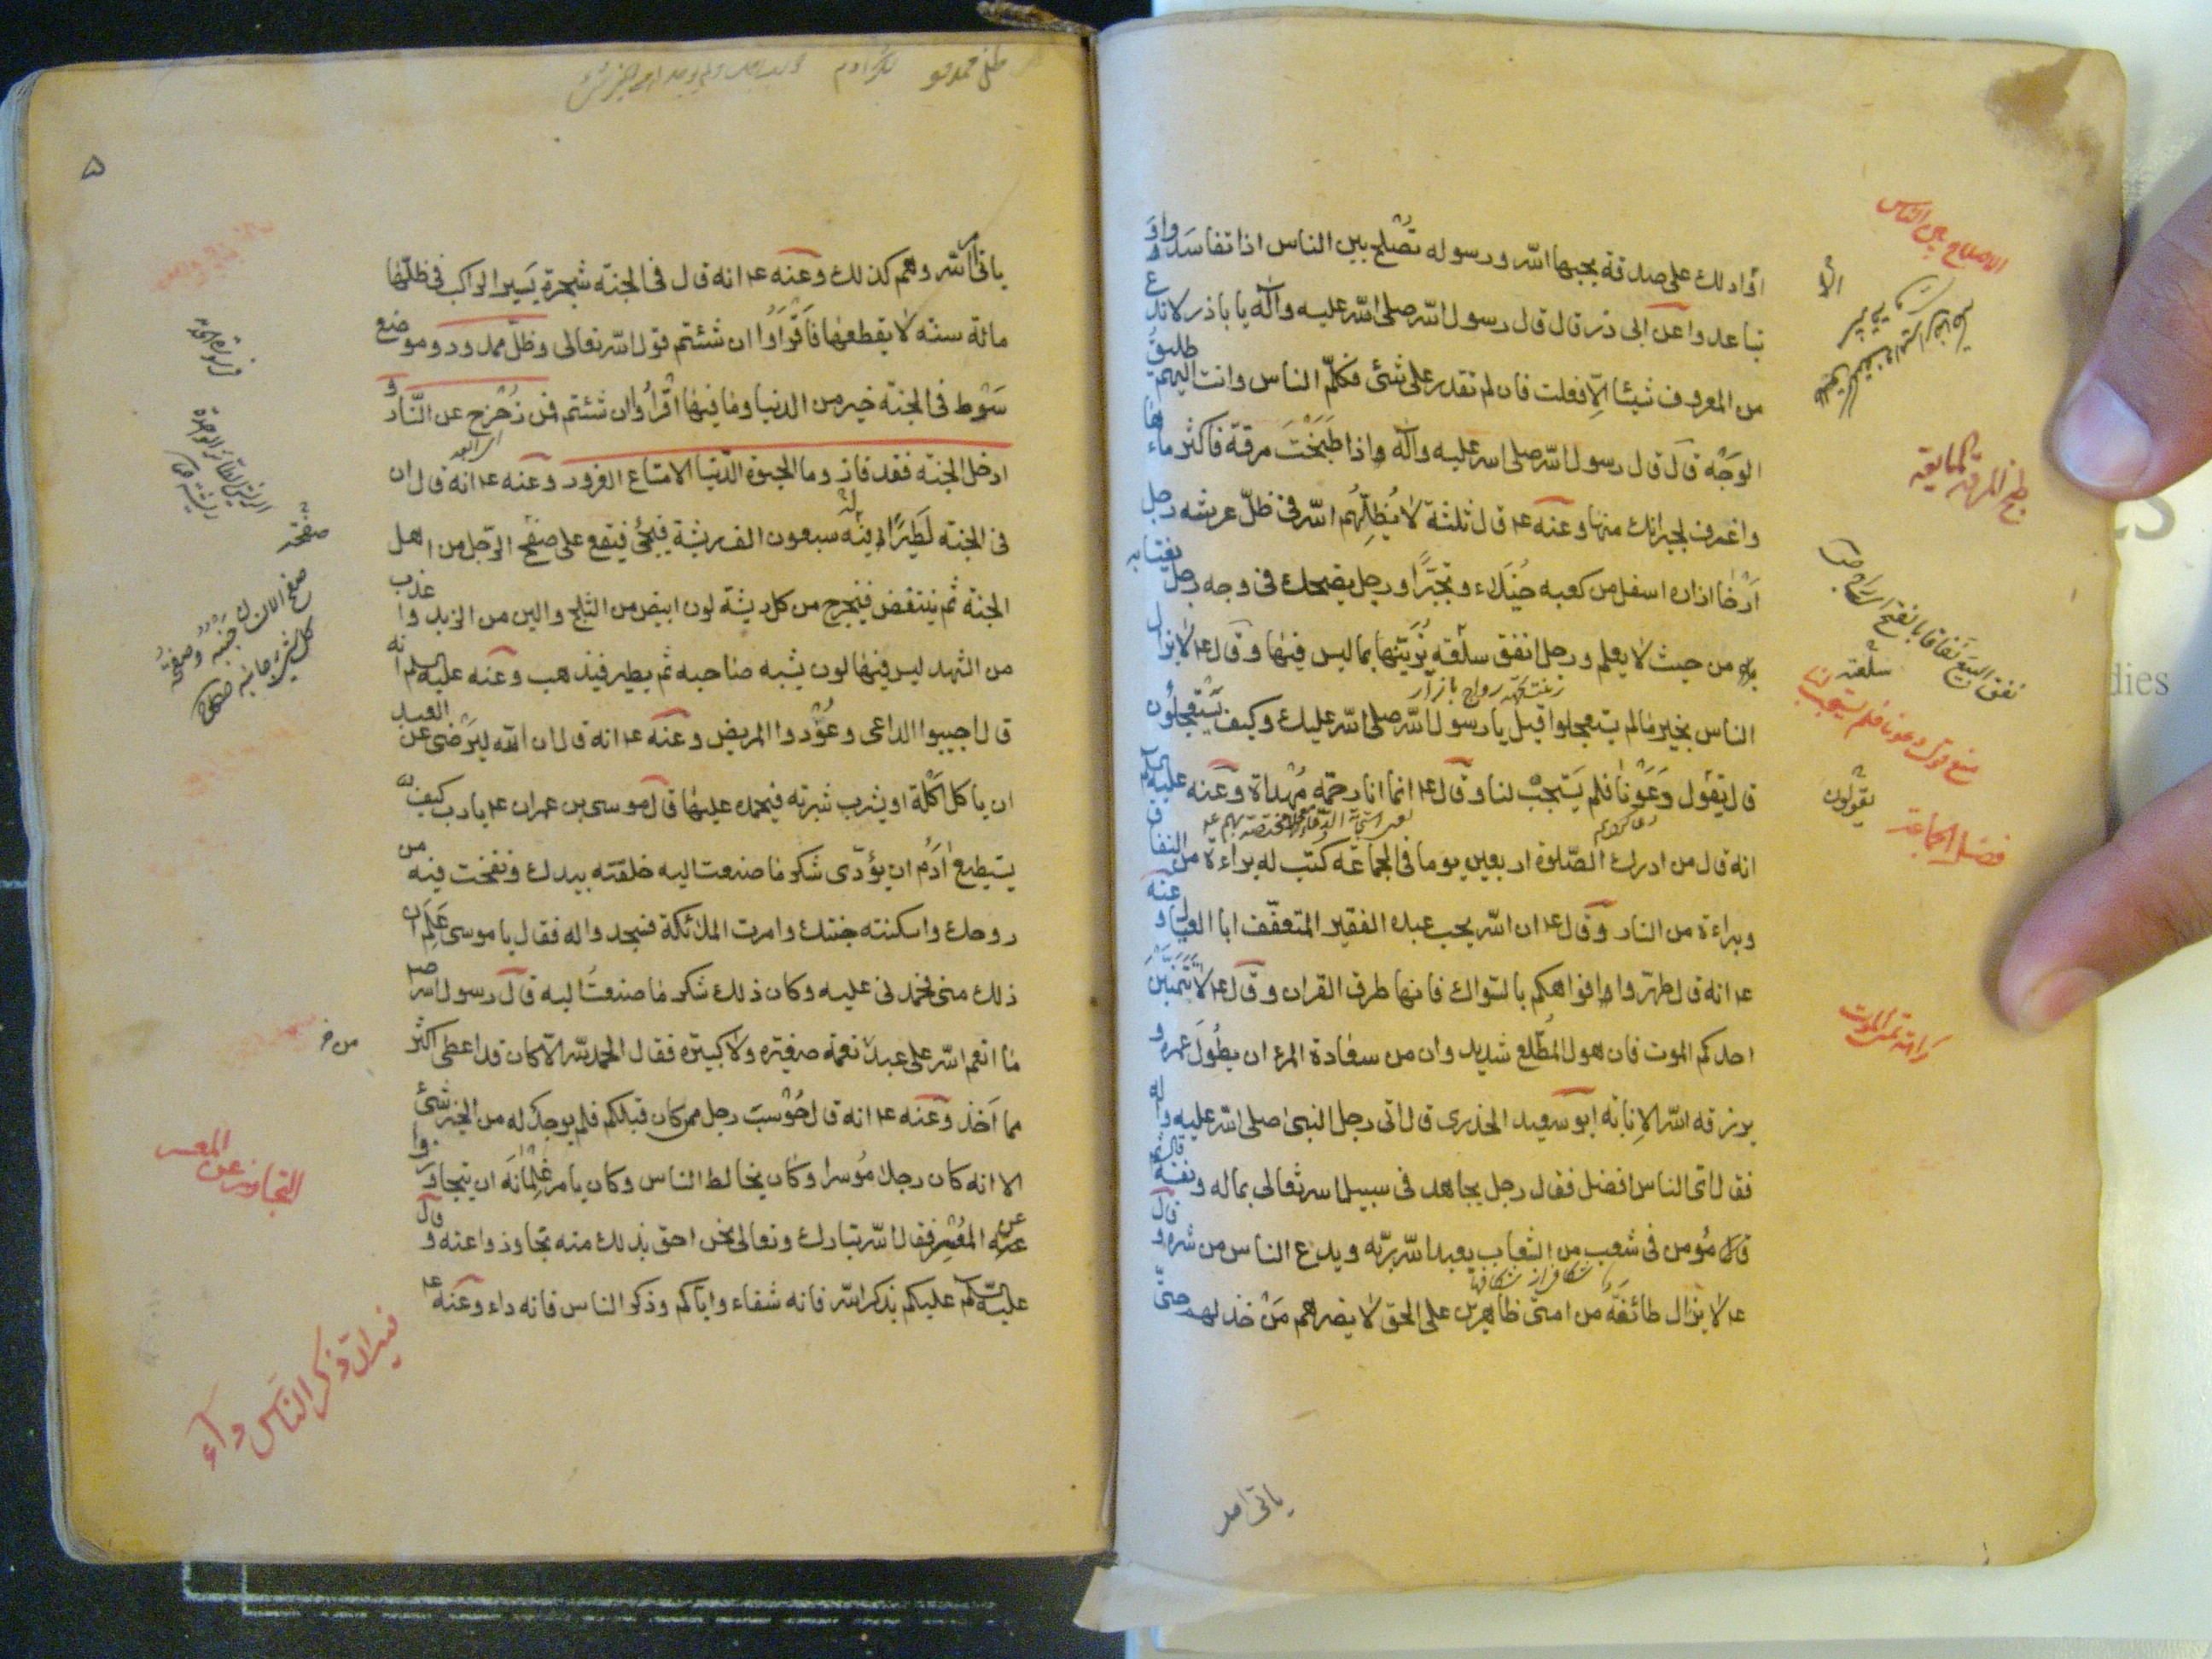 الاصلاح بين الناس
افاد لك على صدقة يحبها الله ورسوله تصلح بين الناس اذا تفاسدوا و
تباعدوا عن ابى ذر قال قال رسول الله صلى الله عليه وآله يا باذر لا تدع
من المعروف شيئا الا فعلت فان لم تقدر على شئ فكلم الناس وانت اليهم طليق
الوجه قال قال رسول الله صلى الله عليه وآله واذا طبخت مرقة فاكثر ماءها
واغرف لجيرانك منها وعنه ع انه قال ثلثة لا يظلهم الله فى ظل عرشه رجل
ارخا ازاره اسفل من كعبه خيلاء وتجبرا ورجل يضحك فى وجه رجل يغتابه
من حيث لا يعلم ورجل انفق سلعته يزينها بما ليس فيها وقال ع لا يزال
الناس بخير مالم يتعجلوا قيل يا رسول الله صلى الله عليك وكيف يستعجلون
قال يقول دعونا فلم يستجب لنا وقال ع انما انا رحمة مهداة وعنه عليه
انه قال من ادرك الصلوة اربعين يوما فى الجماعة كتب له براءة من النفاق
وبراءة من النار وقال ع ان الله يحب عبده الفقير المتعفف ابا العيال وعنه
ع انه قال طهروا افواهكم بالسواك فانها طرق القران وقال ع لا يتمنين
احدكم الموت فان هول المطلع شديد وان من سعادة المرء ان يطول عمره و
يرزقه الله الانابة ابو سعيد الخدرى قال اتى رجل النبى صلى الله عليه وآله
فقال اى الناس افضل فقال رجل يجاهد فى سبيل الله تعالى بماله ونفسه قال ثم
قال مؤمن فى شعب من الشعاب يعبد الله ربه ويدع الناس من شره وقال
ع لا يزال طائفة من امتى ظاهرين على الحق لا يضرهم من خذلهم حتى
سلعته
يقولون
فضل الجماعة
ياتى امر
۵
ياتى امر الله وهم كذلك وعنه ع انه قال فى الجنة شجرة يسير الراكب فى ظلها
مائة سنة لا يقطعها فاقرأوا ان شئتم قول الله تعالى وظل ممدود وموضع
سوط فى الجنة خير من الدنيا وما فيها اقرأوا ان شئتم فمن زحزح عن النار و
ادخل الجنة فقد فاز وما الحيوة الدنيا الا متاع الغرور وعنه ع انه قال ان
فى الجنة لطيرا فيه سبعون الف ريشة فيجئ فيقع على صفح الرجل من اهل
الجنة ثم ينتفض فيخرج من كل ريشة لون ابيض من الثلج والين من الزبد واعذب
من الشهد ليس فيها لون يشبه صاحبه ثم يطير فيذهب وعنه عليه السلم انه
قال اجيبوا الداعى وعودوا المريض وعنه ع انه قال ان الله ليرضى عن العبد
ان ياكل اكلة او يشرب شربة فيحمده عليها قال موسى بن عمران ع يا رب كيف
يستطيع ادم ان يؤدى شكر ما صنعت اليه خلقته بيدك ونفخت فيه من
روحك واسكنته جنتك وامرت الملائكة فسجدوا له فقال يا موسى علم ان
ذلك منى فحمدنى عليه وكان ذلك شكر ما صنعت اليه قال رسول الله ص
ما انعم الله على عبد نعمة صغيرة ولا كبيرة فقال الحمد لله الا كان قد اعطى اكثر
مما اخذ وعنه ع انه قال حوسب رجل ممن كان قبلكم فلم يوجد له من الخير شئ
الا انه كان رجلا موسرا وكان يخالط الناس وكان يامر غلمانه ان يتجاوزوا
عن المعسر فقال الله تبارك وتعالى نحن احق بذلك منه تجاوزوا عنه وقال
عليه السلم عليكم بذكر الله فانه شفاء واياكم وذكر الناس فانه داء وعنه ع
صفحته
التجاوز عن المعسر
فيه ان ذكر الناس داء